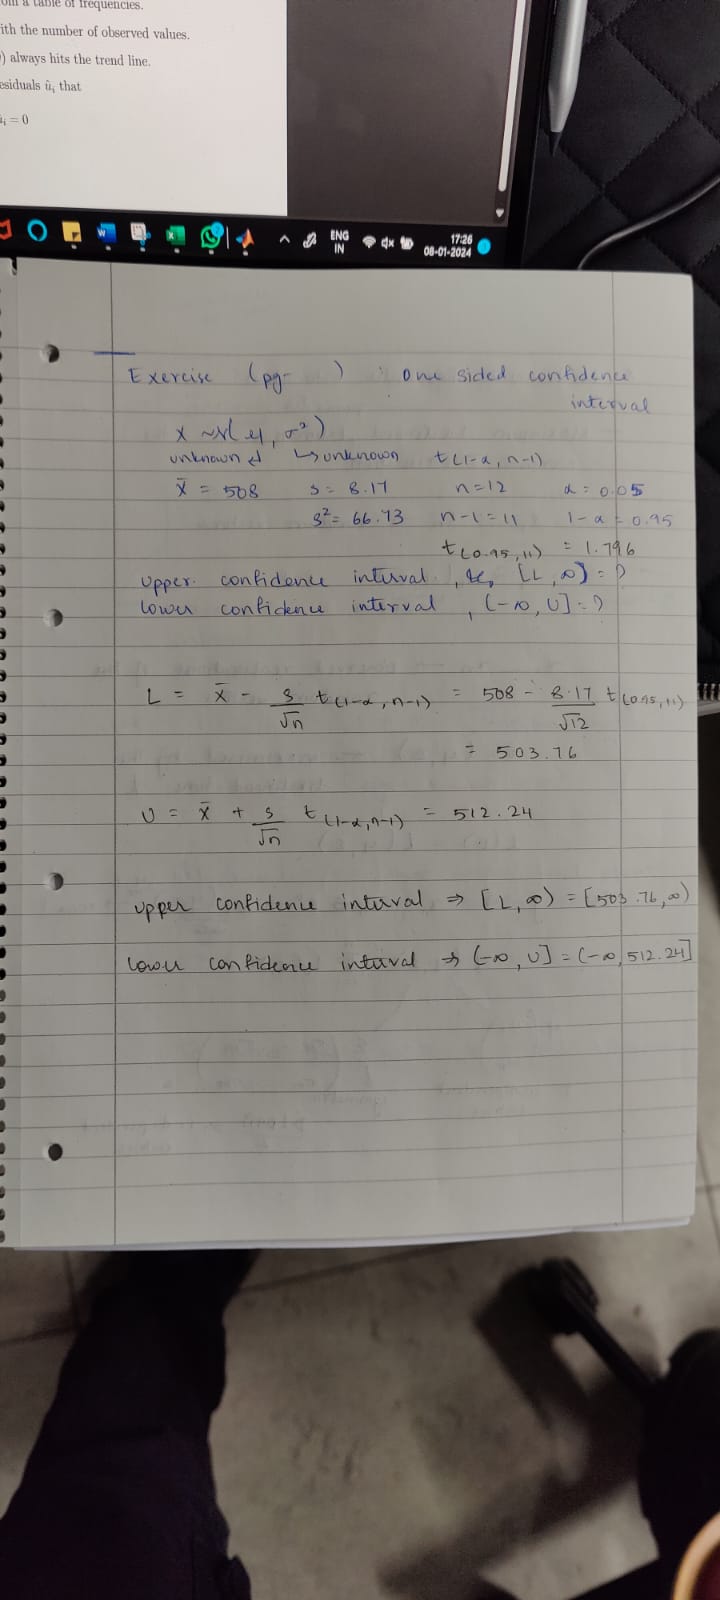 om a table of frequencies.
ith the number of observed values.
) always hits the trend line.
esiduals û_i that
= 0
ENG
IN
17:26
08-01-2024
Exercise (pg- ) : one sided confidence
interval
x ~N( μ, σ²)
unknown ↲ ↳ unknown t(1-α, n-1)
x̄ = 508 s = 8.17 n=12 α = 0.05
s² = 66.73 n-1 = 11 1-α = 0.95
t(0.95,11) = 1.796
upper confidence interval, [L, ∞) = ?
lower confidence interval, (-∞, U] = ?
L = x̄ - s/√n t(1-α, n-1) = 508 - 8.17/√12 t(0.95,11)
= 503.76
U = x̄ + s/√n t(1-α,n-1) = 512.24
upper confidence interval ⇒ [L,∞) = [503.76,∞)
lower confidence interval ⇒ (-∞, U] = (-∞, 512.24]